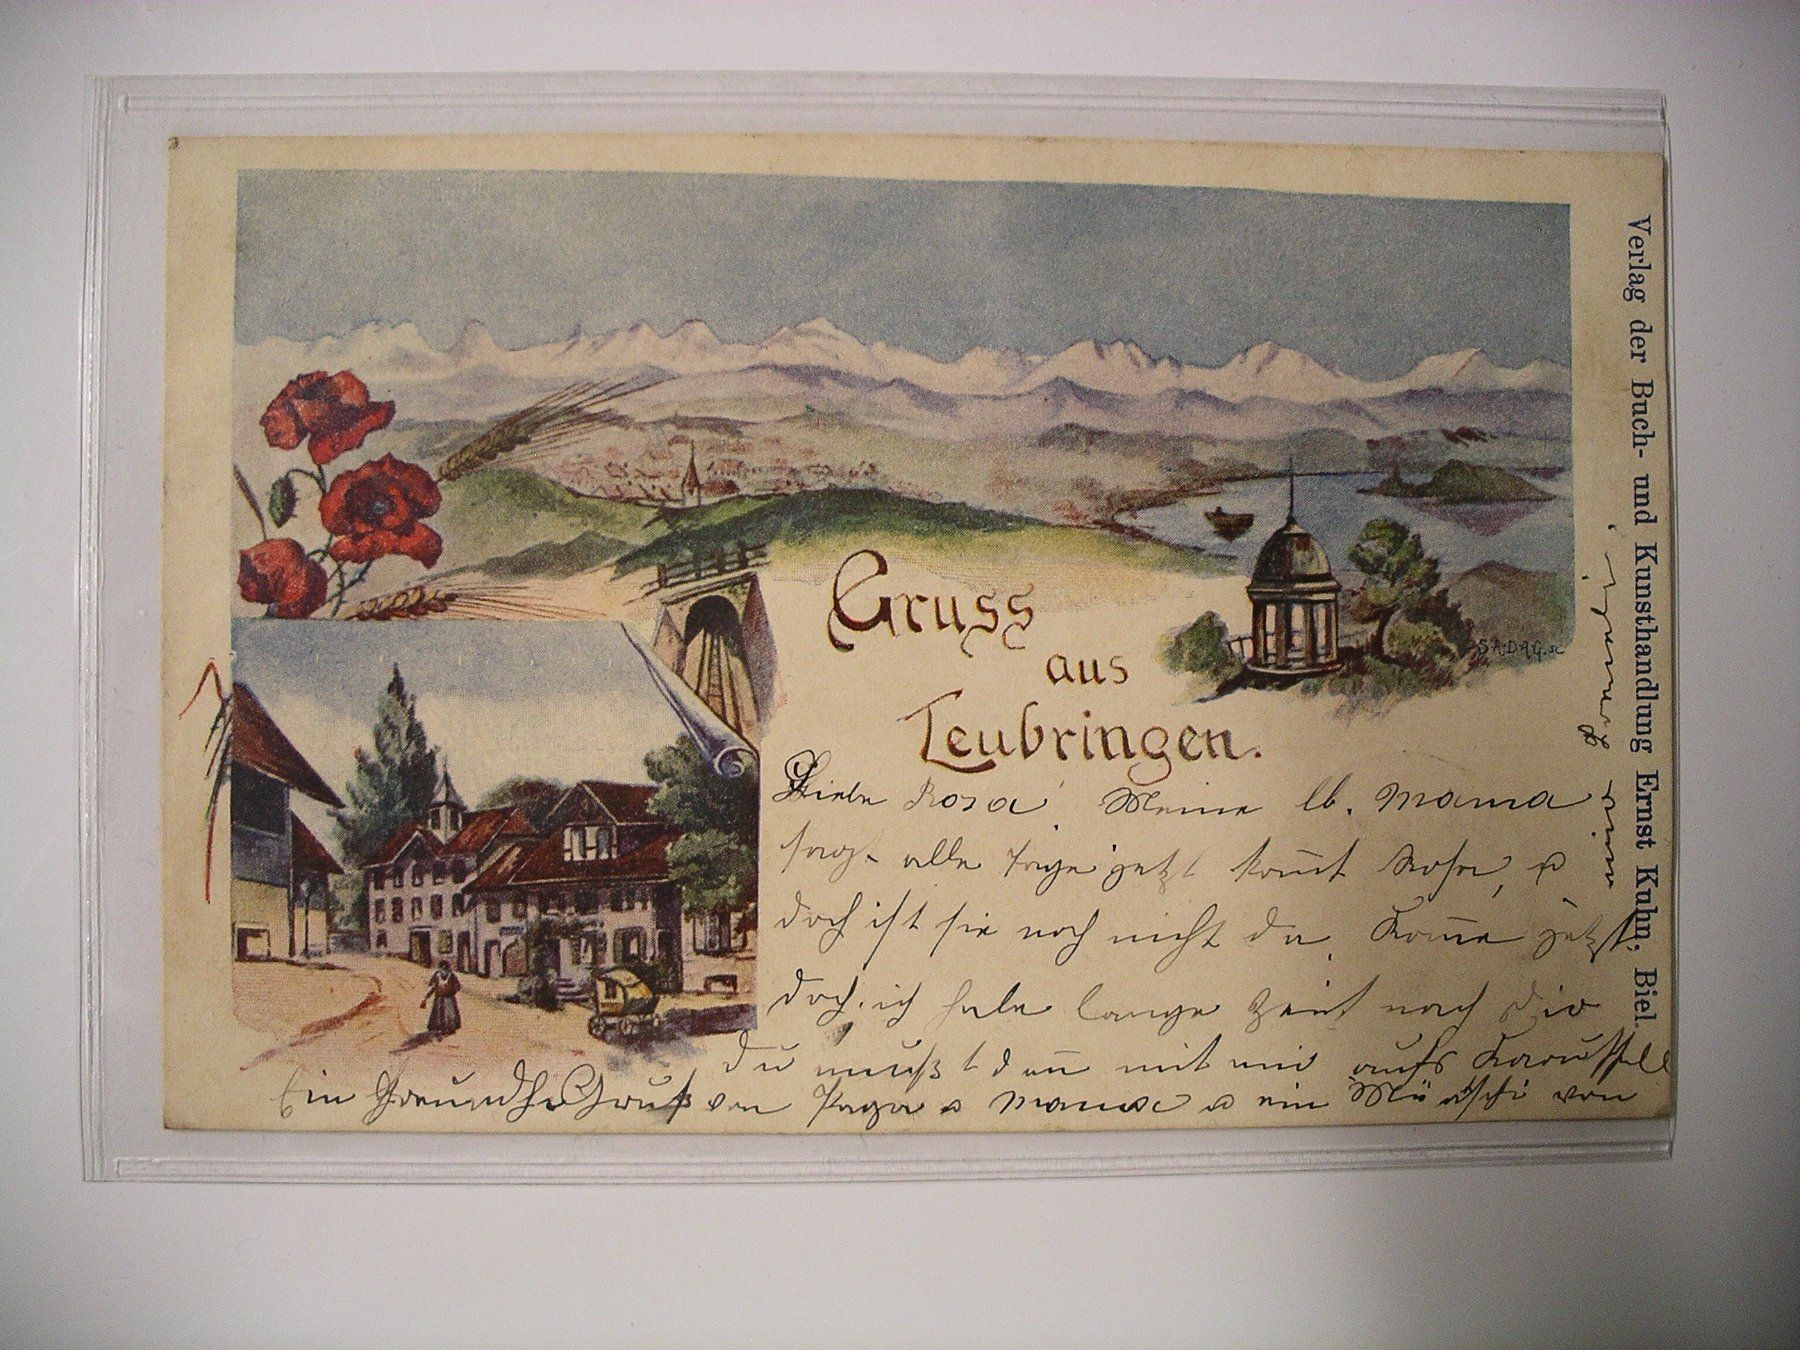 Gruss
aus
Leubringen.
S.A.D.A.G.
Verlag der Buch- und Kunsthandlung Ernst Kuhn, Biel.
Liebe Rosa! Meine lb. Mama
sagt alle Tage jetzt kom̅t Rosa, u
doch ist sie noch nicht da. Kom̅e jetzt
doch, ich habe lange Zeit nach Dir
Du mußt dan̅ mit mir aufs Karussell
Ein Gruß von Papa u Mama u ein Müntschi von